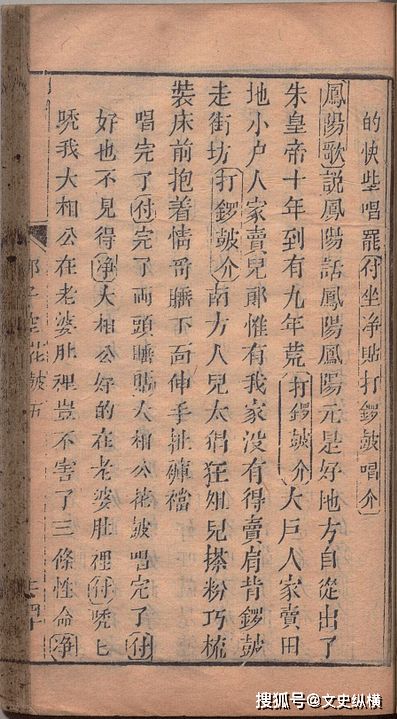 的快些唱罷付坐净貼打鑼皷唱介
鳳陽歌說鳳陽話鳳陽鳳陽元是好地方自從出了
朱皇帝十年到有九年荒打鑼皷介大戶人家賣田
地小户人家賣兒郎惟有我家沒有得賣肩背鑼皷
走街坊打鑼皷介南方人兒太倡狂姐兒搽粉巧梳
裝床前抱着情哥睡下面伸手扯褲襠
唱完了付完了両頭睡貼大相公花皷唱完了付
好也不見得净大相公好的在老婆肚裡付唬匕
唬我大相公在老婆肚裡豈不害了三條性命净
搜狐号@文史纵横